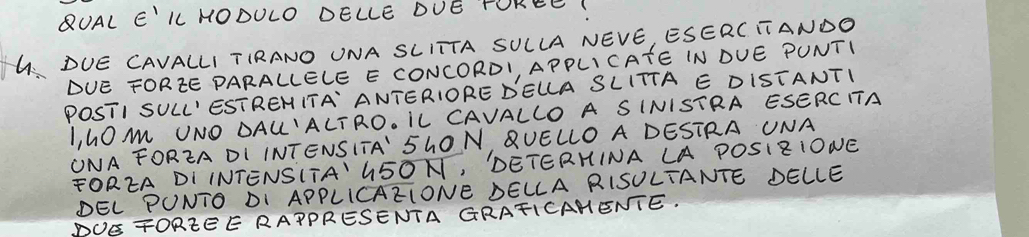 QUAL E' IL MODULO DELLE DUE FORZE?
4. DUE CAVALLI TIRANO UNA SLITTA SULLA NEVE, ESERCITANDO
DUE FORZE PARALLELE E CONCORDI, APPLICATE IN DUE PUNTI
POSTI SULL'ESTREMITA' ANTERIORE DELLA SLITTA E DISTANTI
1,40 m UNO DALL'ALTRO. IL CAVALLO A SINISTRA ESERCITA
UNA FORZA DI INTENSITA' 540 N, QUELLO A DESTRA UNA
FORZA DI INTENSITA' 450 N. DETERMINA LA POSIZIONE
DEL PUNTO DI APPLICAZIONE DELLA RISULTANTE DELLE
DUE FORZE E RAPPRESENTA GRAFICAMENTE.